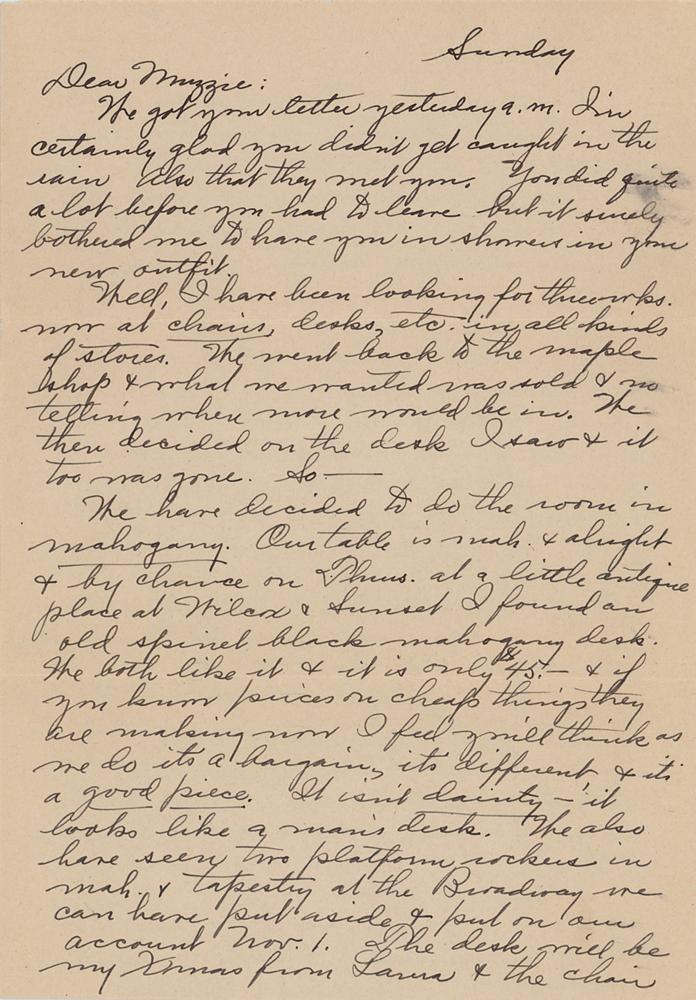 Sunday
Dear Muzzie:
We got your letter yesterday a.m. I'm
certainly glad you didn't get caught in the
rain Also that they met you. You did quite
a lot before you had to leave but it surely
bothered me to have you in showers in your
new outfit.
Well, I have been looking for three wks.
now at chairs, desks, etc. in all kinds
of stores. We went back to the maple
shop & what we wanted was sold & no
telling when more would be in. We
then decided on the desk I saw & it
too was gone. So —
We have decided to do the room in
mahogany. Our table is mah. & alright
& by chance on Thurs. at a little antique
place at Wilcox & Sunset I found an
old spinet black mahogany desk.
We both like it & it is only $45.— & if
you know prices on cheap things they
are making now I feel you'll think as
we do its a bargain, its different & its
a good piece. It isn't dainty — it
looks like a man's desk. We also
have seen two platform rockers in
mah. & tapestry at the Broadway we
can have put aside & put on our
account Nov. 1. The desk will be
my Xmas from Laura & the chair